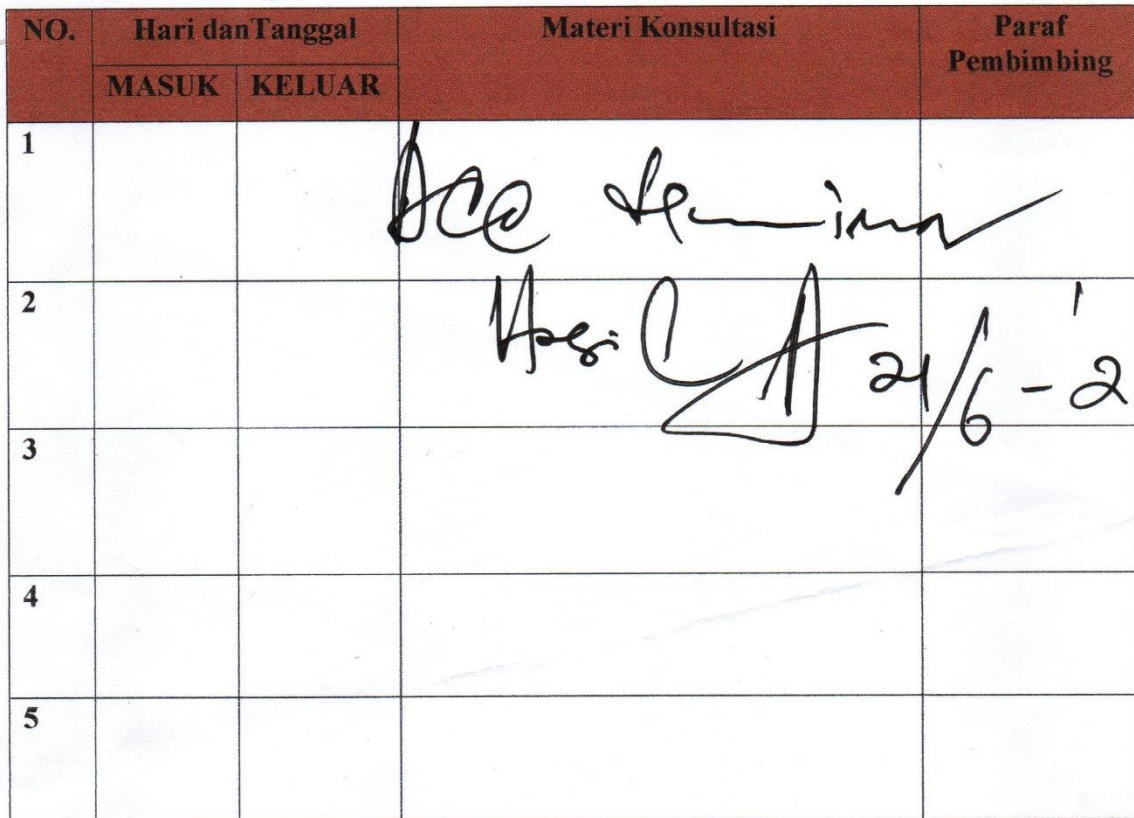 NO. Hari danTanggal Materi Konsultasi Paraf
Pembimbing
MASUK KELUAR
1
Acc Seminar
2
Hasil 21/6-2
3
4
5